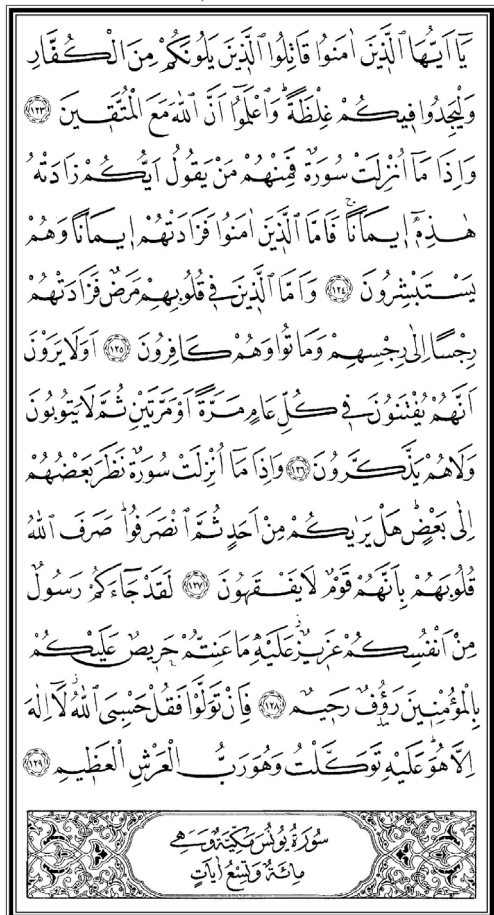 يَٓا اَيُّهَا الَّذ۪ينَ اٰمَنُوا قَاتِلُوا الَّذ۪ينَ يَلُونَكُمْ مِنَ الْكُفَّارِ
وَلْيَجِدُوا ف۪يكُمْ غِلْظَةًۜ وَاعْلَمُٓوا اَنَّ اللّٰهَ مَعَ الْمُتَّق۪ينَ ﴿١٢٣﴾
وَاِذَا مَٓا اُنْزِلَتْ سُورَةٌ فَمِنْهُمْ مَنْ يَقُولُ اَيُّكُمْ زَادَتْهُ
هٰذِه۪ٓ ا۪يمَانًاۚ فَاَمَّا الَّذ۪ينَ اٰمَنُوا فَزَادَتْهُمْ ا۪يمَانًا وَهُمْ
يَسْتَبْشِرُونَ ﴿١٢٤﴾ وَاَمَّا الَّذ۪ينَ ف۪ي قُلُوبِهِمْ مَرَضٌ فَزَادَتْهُمْ
رِجْسًا اِلٰى رِجْسِهِمْ وَمَاتُوا وَهُمْ كَافِرُونَ ﴿١٢٥﴾ اَوَلَا يَرَوْنَ
اَنَّهُمْ يُفْتَنُونَ ف۪ي كُلِّ عَامٍ مَرَّةً اَوْ مَرَّتَيْنِ ثُمَّ لَا يَتُوبُونَ
وَلَا هُمْ يَذَّكَّرُونَ ﴿١٢٦﴾ وَاِذَا مَٓا اُنْزِلَتْ سُورَةٌ نَظَرَ بَعْضُهُمْ
اِلٰى بَعْضٍۜ هَلْ يَرٰيكُمْ مِنْ اَحَدٍ ثُمَّ انْصَرَفُواۜ صَرَفَ اللّٰهُ
قُلُوبَهُمْ بِاَنَّهُمْ قَوْمٌ لَا يَفْقَهُونَ ﴿١٢٧﴾ لَقَدْ جَٓاءَكُمْ رَسُولٌ
مِنْ اَنْفُسِكُمْ عَز۪يزٌ عَلَيْهِ مَا عَنِتُّمْ حَر۪يصٌ عَلَيْكُمْ
بِالْمُؤْمِن۪ينَ رَؤُ۫فٌ رَح۪يمٌ ﴿١٢٨﴾ فَاِنْ تَوَلَّوْا فَقُلْ حَسْبِيَ اللّٰهُۘ لَٓا اِلٰهَ
اِلَّا هُوَۜ عَلَيْهِ تَوَكَّلْتُ وَهُوَ رَبُّ الْعَرْشِ الْعَظ۪يمِ ﴿١٢٩﴾
سُورَةُ يُونُسَ مَكِّيَّةٌ وَهِيَ
مِائَةٌ وَتِسْعُ اٰيَاتٍ